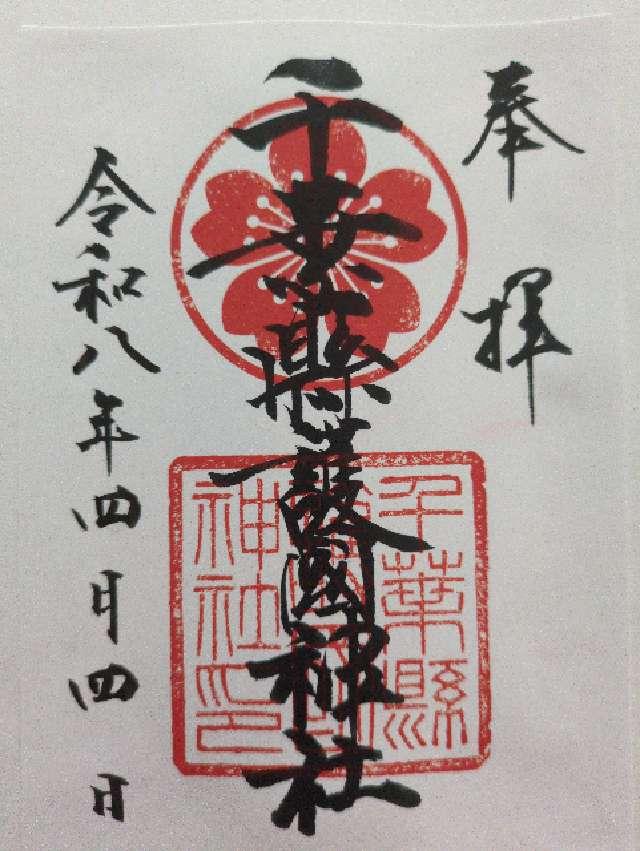 奉拝
千葉縣護國神社
千葉縣
護國
神社印
令和八年四月四日